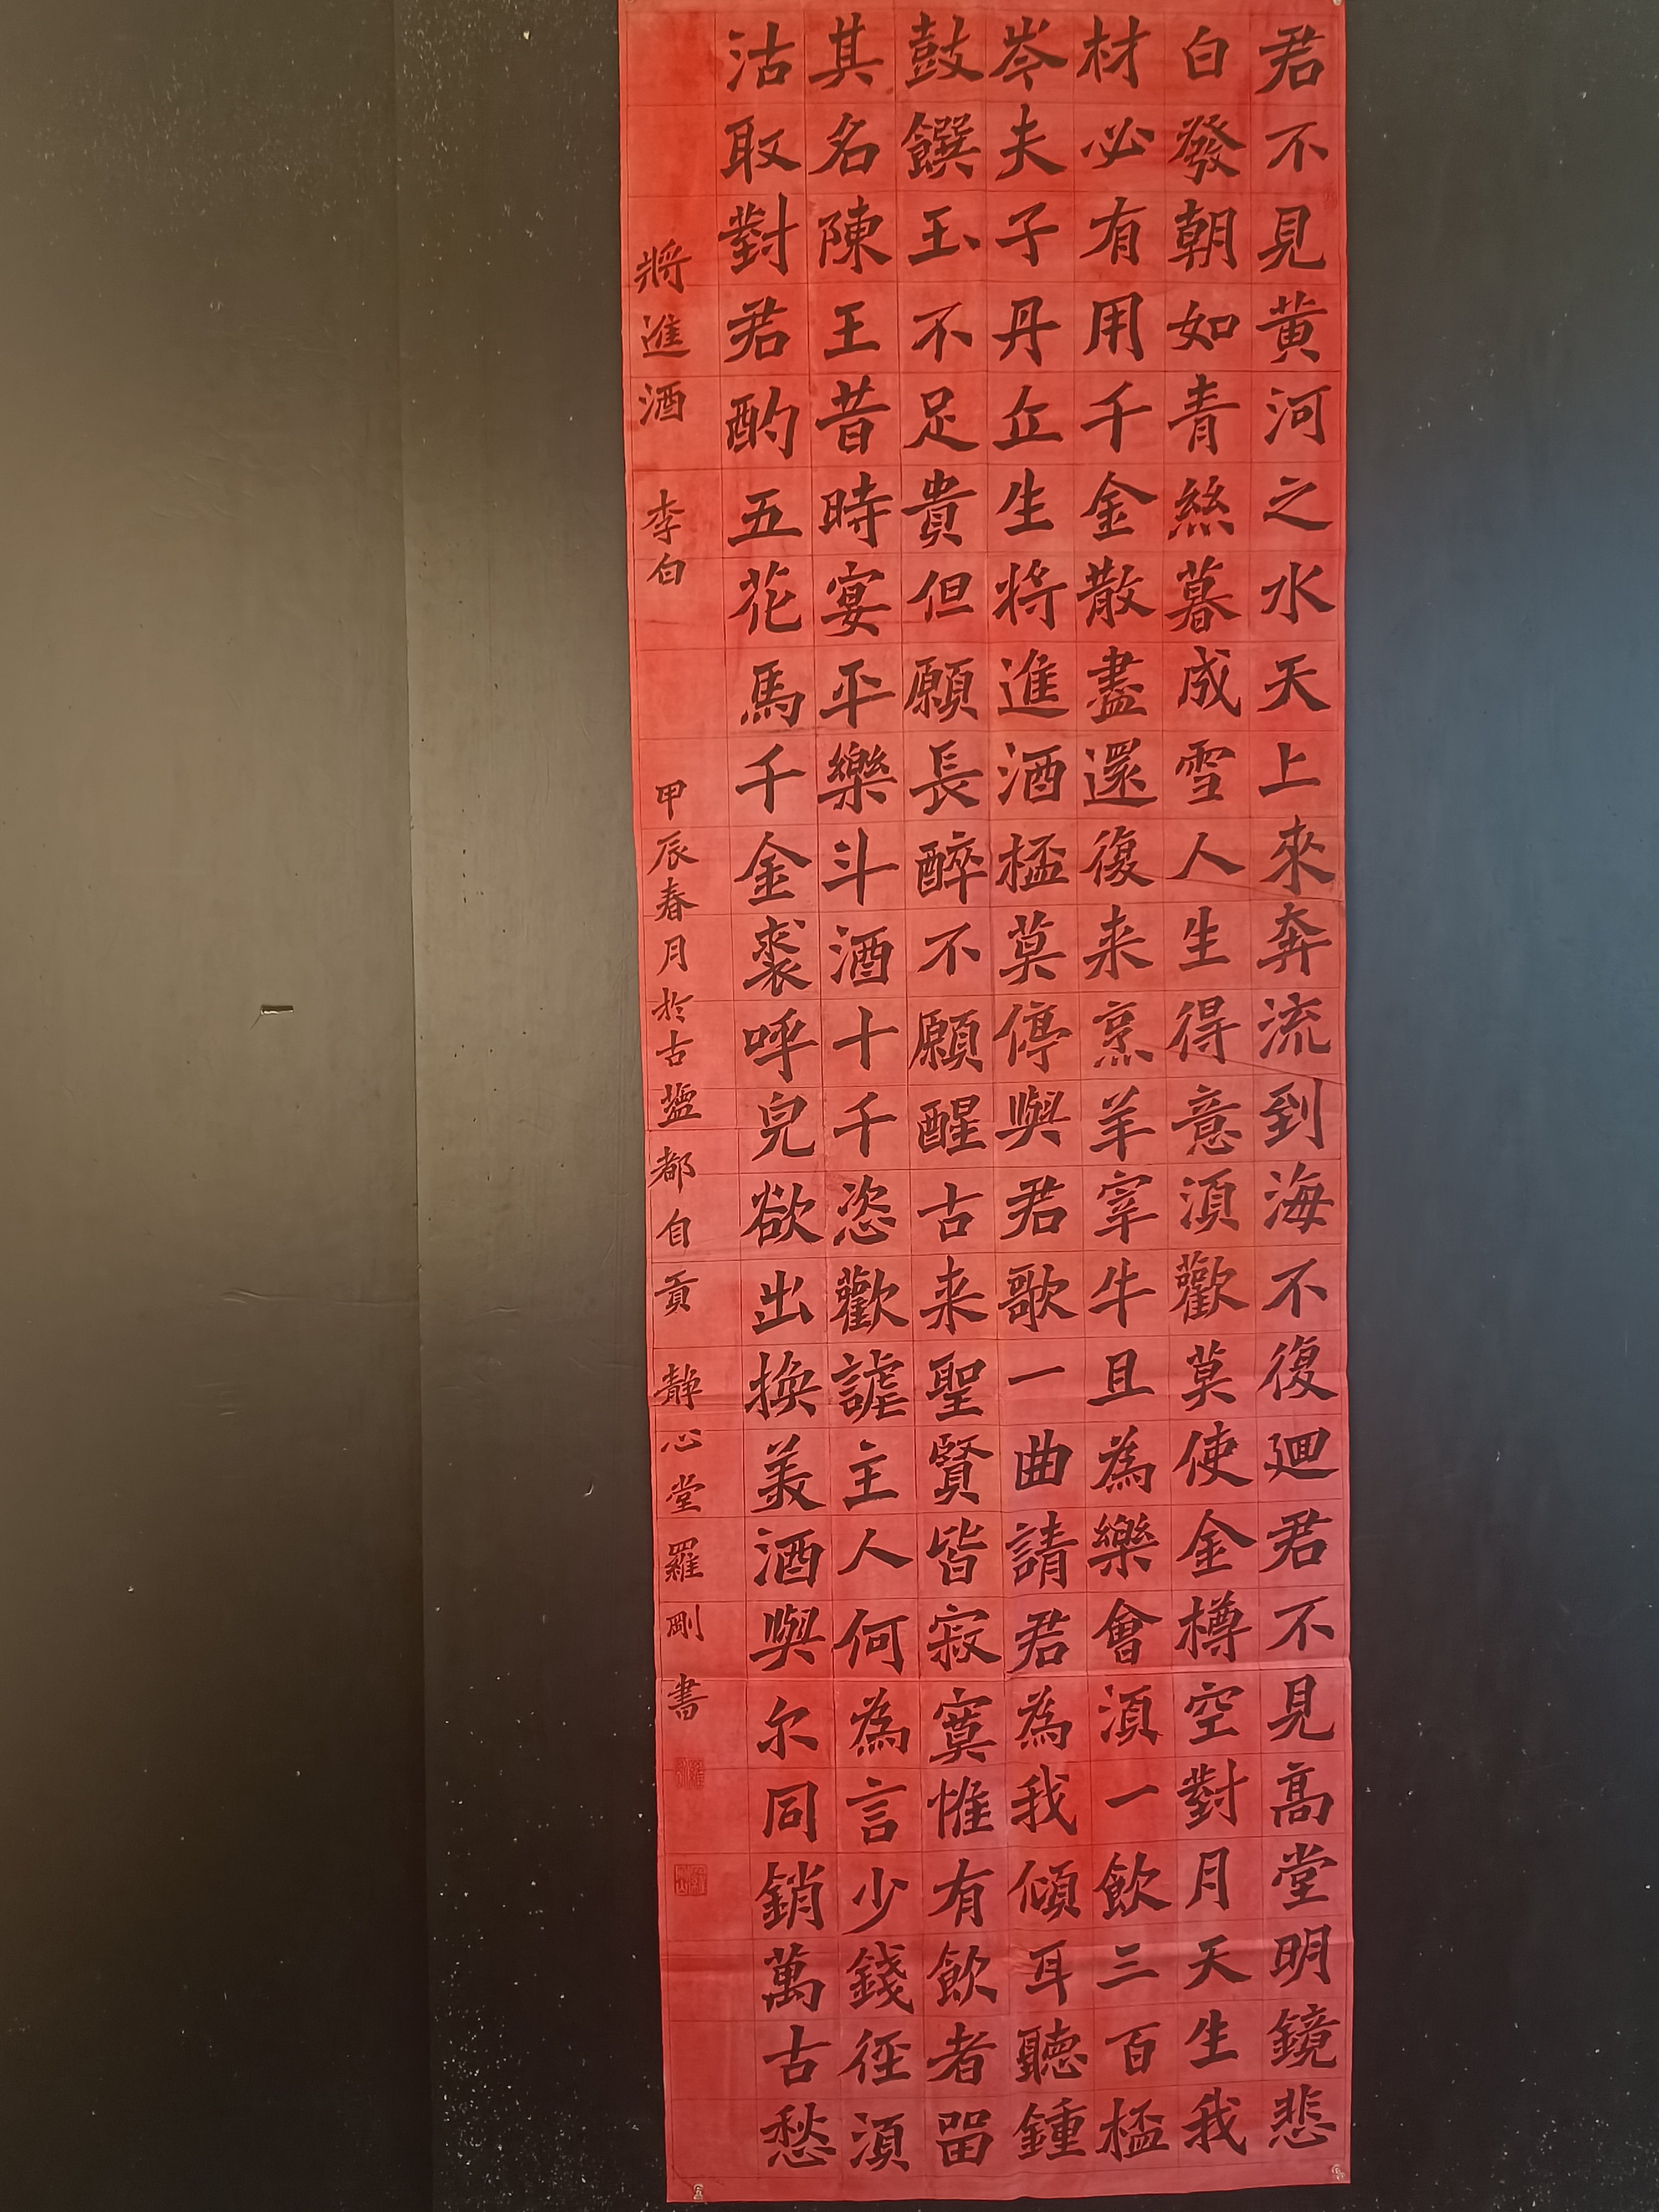 君不見黃河之水天上來奔流到海不復廻君不見高堂明鏡悲
白發朝如青絲暮成雪人生得意須歡莫使金樽空對月天生我
材必有用千金散盡還復来烹羊宰牛且為樂會須一飲三百桮
岑夫子丹丘生將進酒桮莫停與君歌一曲請君為我傾耳聽鍾
鼓饌玉不足貴但願長醉不願醒古来聖賢皆寂寞惟有飲者留
其名陳王昔時宴平樂斗酒十千恣歡謔主人何為言少錢徑須
沽取對君酌五花馬千金裘呼兒欲出換美酒與尔同銷萬古愁
將進酒 李白 甲辰春月於古盬都自貢 靜心堂羅剛書